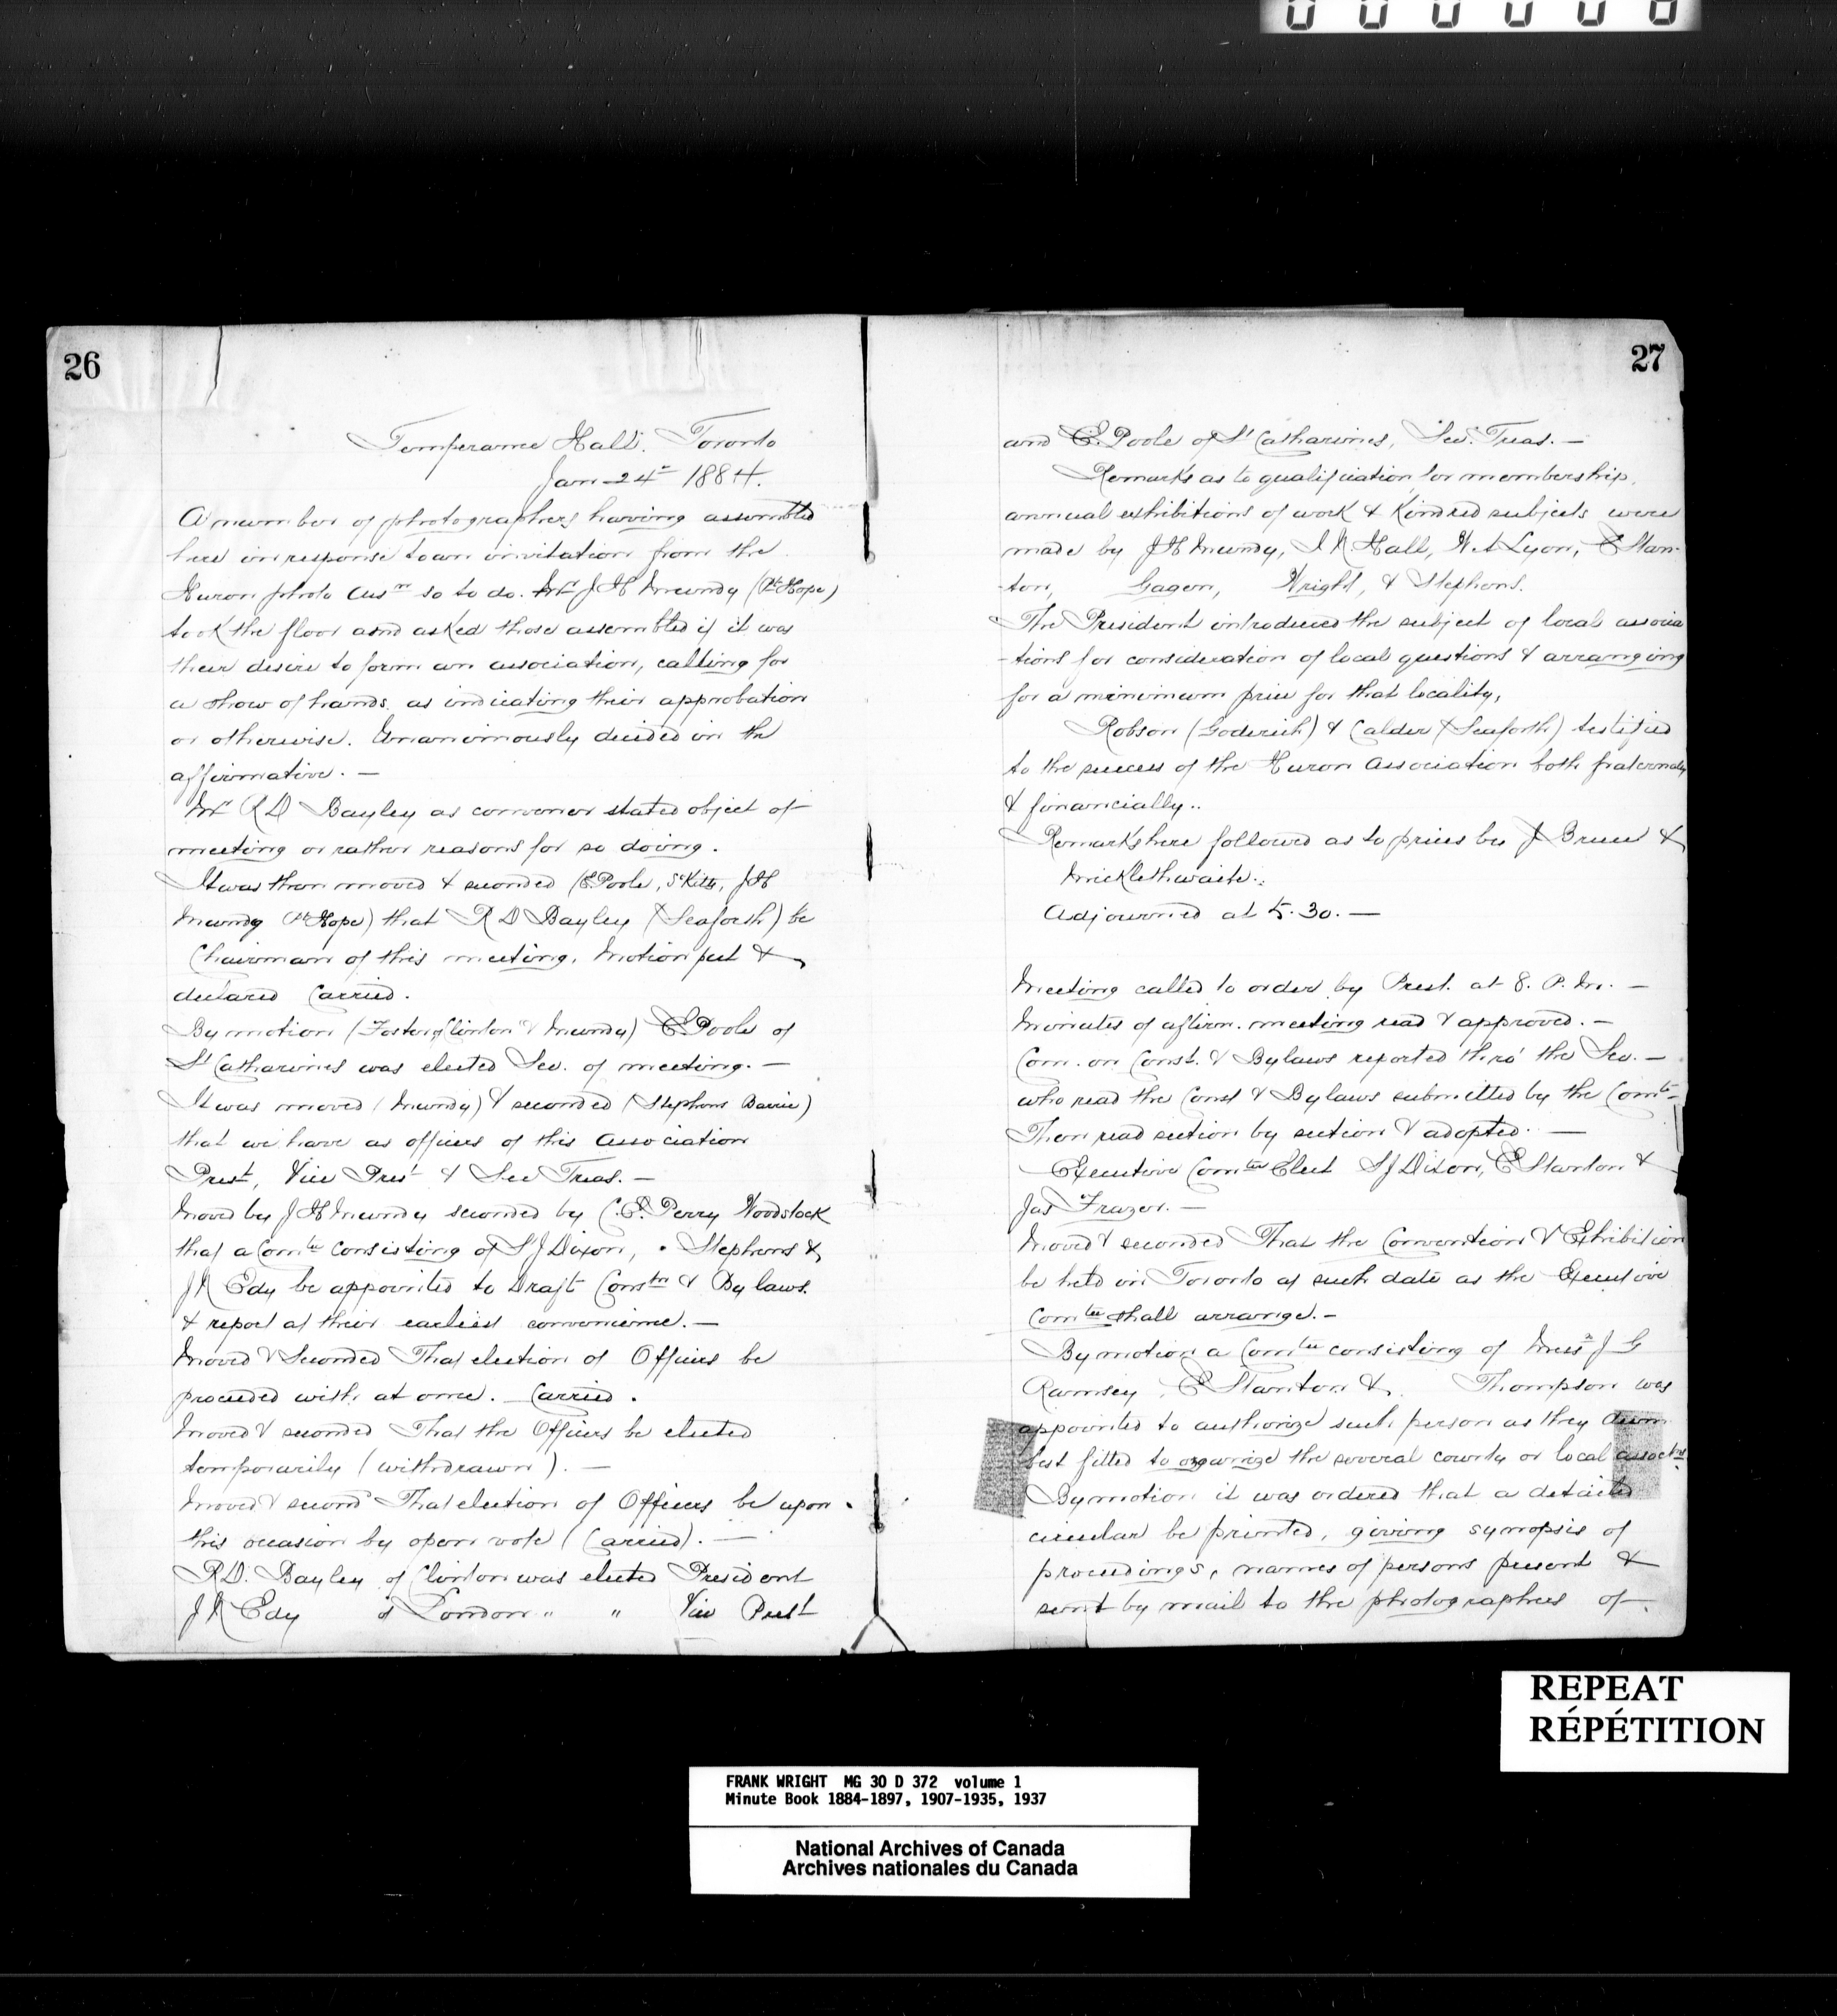 0 0 0 0 0 8
26
Temperance Hall. Toronto
Jan 24th 1884.
A number of photographers having assembled
here in response to an invitation from the
Huron photo assn so to do. Mr J H Mundy (Pt Hope)
took the floor and asked those assembled if it was
their desire to form an association, calling for
a show of hands, as indicating their approbation
or otherwise. Unanimously decided in the
affirmative. —
Mr R D Bayley as convenor stated object of
meeting or rather reasons for so doing.
It was then moved & seconded (E. Poole, St Kitts, J H
Mundy Pt Hope) that R D Bayley (Seaforth) be
Chairman of this meeting. Motion put &
declared Carried.
By motion (Foster, Clinton & Mundy) E. Poole of
St Catharines was elected Sec. of meeting. —
It was moved (Mundy) & seconded (Stephens Barrie)
that we have as officers of this Association
Prest, Vice Prest & Sec Treas. —
Moved by J H Mundy seconded by C. E. Perry Woodstock
that a Comtee consisting of S J Dixon, . Stephens &
J N Edy be appointed to Draft Constn & By laws.
& report at their earliest convenience. —
Moved & Seconded That election of Officers be
proceeded with at once. Carried.
Moved & seconded That the Officers be elected
temporarily (withdrawn). —
Moved & second That election of Officers be upon
this occasion by open vote (Carried). —
R.D. Bayley of Clinton was elected President
J N Edy of London " " Vice Prest
27
and E. Poole of St Catharines, Sec. Treas. —
Remarks as to qualification for membership,
annual exhibitions of work & kindred subjects were
made by J H Mundy, I N Hall, W. A Lyon, E Stan-
-ton, Gagen, Wright, & Stephens.
The President introduced the subject of local associa
-tions for consideration of local questions & arranging
for a minimum price for that locality,
Robson (Goderich) & Calder (Seaforth) testified
to the success of the Huron Association both fraternally
& financially..
Remarks here followed as to prices by J Bruce &
Micklethwaite..
Adjourned at 5.30. —
Meeting called to order by Prest. at 8. P. M. —
Minutes of aftern. meeting read & approved. —
Com. on Const. & Bylaws reported thro' the Sec. —
who read the Const & Bylaws submitted by the Comte-
Then read section by section & adopted. —
Executive Comtee Elect S J Dixon, E Stanton &
Jas Frazer. —
Moved & seconded That the Convention & Exhibition
be held in Toronto at such date as the Executive
Comtee shall arrange. —
By motion a Comtee consisting of Messrs J G
Ramsey, E Stanton & Thompson was
appointed to authorize such person as they deem
best fitted to organize the several county or local assoctns.
By motion it was ordered that a detailed
circular be printed, giving synopsis of
proceedings, names of persons present &
sent by mail to the photographers of
REPEAT
RÉPÉTITION
FRANK WRIGHT MG 30 D 372 volume 1
Minute Book 1884-1897, 1907-1935, 1937
National Archives of Canada
Archives nationales du Canada